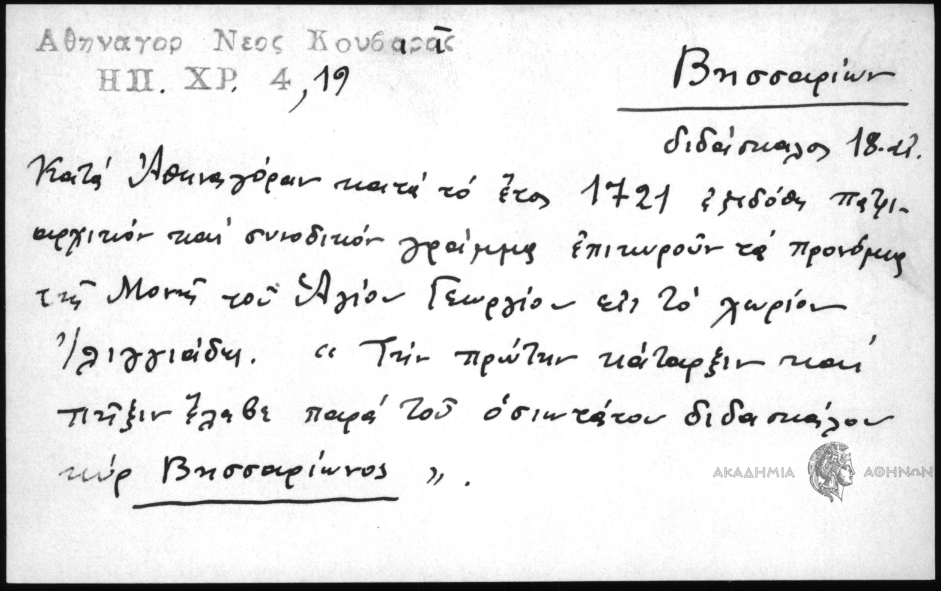 Αθηναγορ Νεος Κουβαρᾶς
ΗΠ. ΧΡ. 4, 19
Βησσαρίων
διδάσκαλος 18. αἰ.
Κατά Ἀθηναγόραν κατά τό ἔτος 1721 ἐξεδόθη πατρι-
αρχικόν καί συνοδικόν γράμμα ἐπικυροῦν τά προνόμια
τῆς Μονῆς τοῦ Ἁγίου Γεωργίου εἰς τό χωρίον
λιγγιάδη. " Τήν πρώτην κάταρξιν καί
πῆξιν ἔλαβε παρά τοῦ ὁσιωτάτου διδασκάλου
κύρ Βησσαρίωνος ".
ΑΚΑΔΗΜΙΑ ΑΘΗΝΩΝ